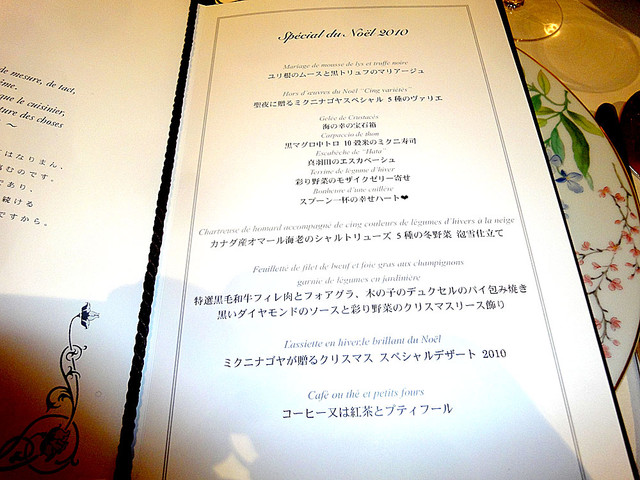 de mesure, de tact,
que le cuisinier,
ture des choses
~
はなりまん、
むのです。
であり、
続ける
ですから。
Spécial du Noël 2010
Mariage de mousse de lys et truffe noire
ユリ根のムースと黒トリュフのマリアージュ
Hors d'œuvres du Noël "Cinq variétés"
聖夜に贈るミクニナゴヤスペシャル 5種のヴァリエ
Gelée de Crustacés
海の幸の宝石箱
Carpaccio de thon
黒マグロ中トロ 10穀米のミクニ寿司
Escabèche de "Hata"
真羽田のエスカベーシュ
Terrine de légume d'hiver
彩り野菜のモザイクゼリー寄せ
Bonheur d'une cuillère
スプーン一杯の幸せハート❤
Chartreuse de homard accompagné de cinq couleurs de légumes d'hivers à la neige
カナダ産オマール海老のシャルトリューズ 5種の冬野菜 泡雪仕立て
Feuillette de filet de bœuf et foie gras aux champignons
garnie de légumes en jardinière
特選黒毛和牛フィレ肉とフォアグラ、木の子のデュクセルのパイ包み焼き
黒いダイヤモンドのソースと彩り野菜のクリスマスリース飾り
L'assiette en hiver,le brillant du Noël
ミクニナゴヤが贈るクリスマス スペシャルデザート 2010
Café ou thé et petits fours
コーヒー又は紅茶とプティフール